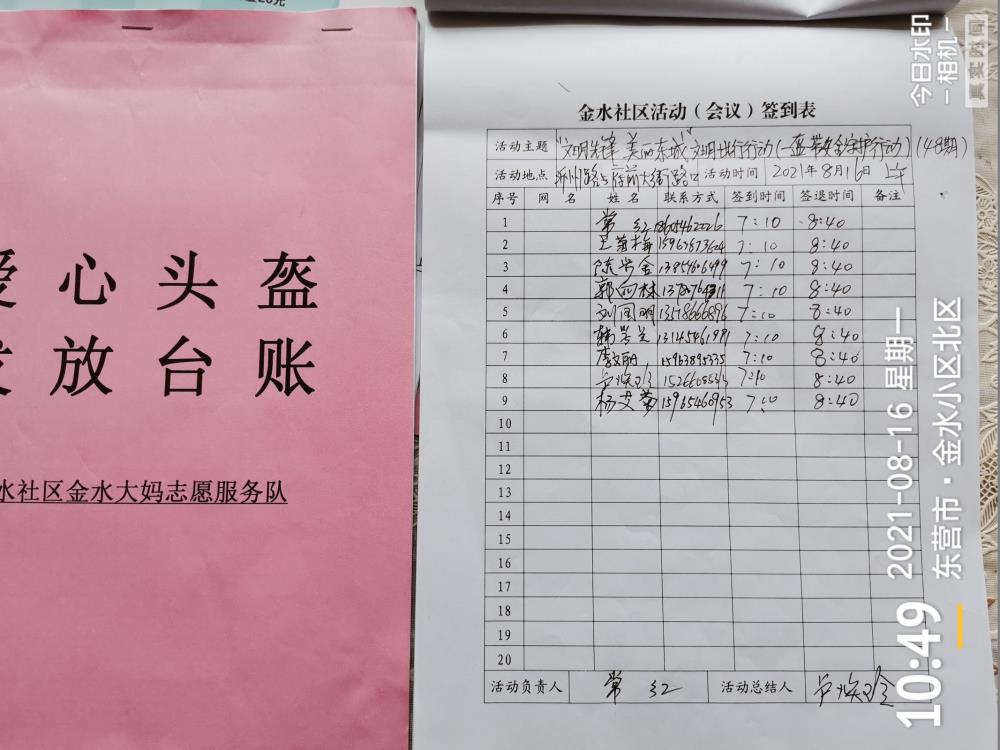 心头盔
放台账
水社区金水大妈志愿服务队
金水社区活动（会议）签到表
活动主题 "文明先锋 美丽东城"文明出行行动(一盔一带安全守护行动)(48期)
活动地点 沂州路与府前大街路口 活动时间 2021年8月16日 上午
序号 网 名 姓 名 联系方式 签到时间 签退时间 备注
1 常红 7:10 8:40
2 7:10 8:40
3 7:10 8:40
4 郭向林 7:10 8:40
5 刘国明 13178660896 7:10 8:40
6 7:10 8:40
7 李文丽 15963895335 7:10 8:40
8 卢焕玲 7:10 8:40
9 杨艾菊 15965460953 7:10 8:40
10
11
12
13
14
15
16
17
18
19
20
活动负责人 常红 活动总结人 卢焕玲
今日水印
-相机-
真实时间
10:49
2021-08-16 星期一
东营市·金水小区北区